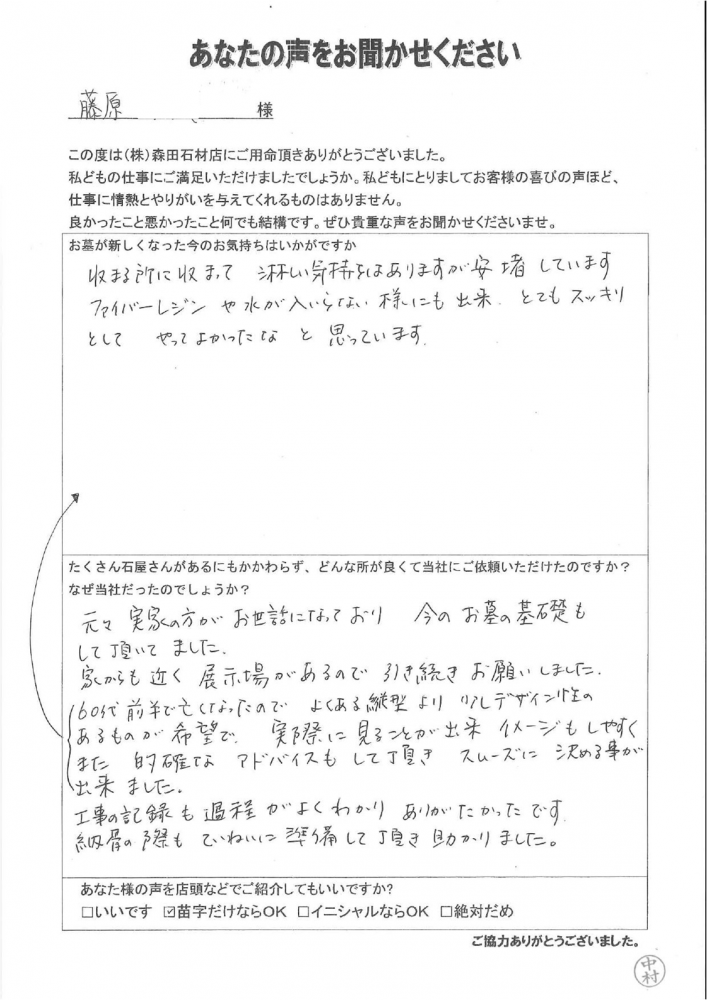 あなたの声をお聞かせください
藤原 様
この度は(株)森田石材店にご用命頂きありがとうございました。
私どもの仕事にご満足いただけましたでしょうか。私どもにとりましてお客様の喜びの声ほど、
仕事に情熱とやりがいを与えてくれるものはありません。
良かったこと悪かったこと何でも結構です。ぜひ貴重な声をお聞かせくださいませ。
お墓が新しくなった今のお気持ちはいかがですか
収まる所に収まって 淋しい気持ちはありますが安堵しています
ファイバーレジンや水が入いらない様にも出来、とてもスッキリ
として やってよかったなと思っています。
たくさん石屋さんがあるにもかかわらず、どんな所が良くて当社にご依頼いただけたのですか?
なぜ当社だったのでしょうか?
元々実家の方がお世話になっており 今のお墓の基礎も
して頂いてました。
家からも近く展示場があるので引き続きお願いしました。
60代前半で亡くなったので よくある縦型より 少しデザイン性の
あるものが希望で、実際に見ることが出来イメージもしやすく
また 的確なアドバイスもして頂き スムーズに決める事が
出来ました。
工事の記録も過程がよくわかりありがたかったです。
納骨の際もていねいに準備して頂き助かりました。
あなた様の声を店頭などでご紹介してもいいですか?
□いいです ☑苗字だけならOK □イニシャルならOK □絶対だめ
ご協力ありがとうございました。
中村